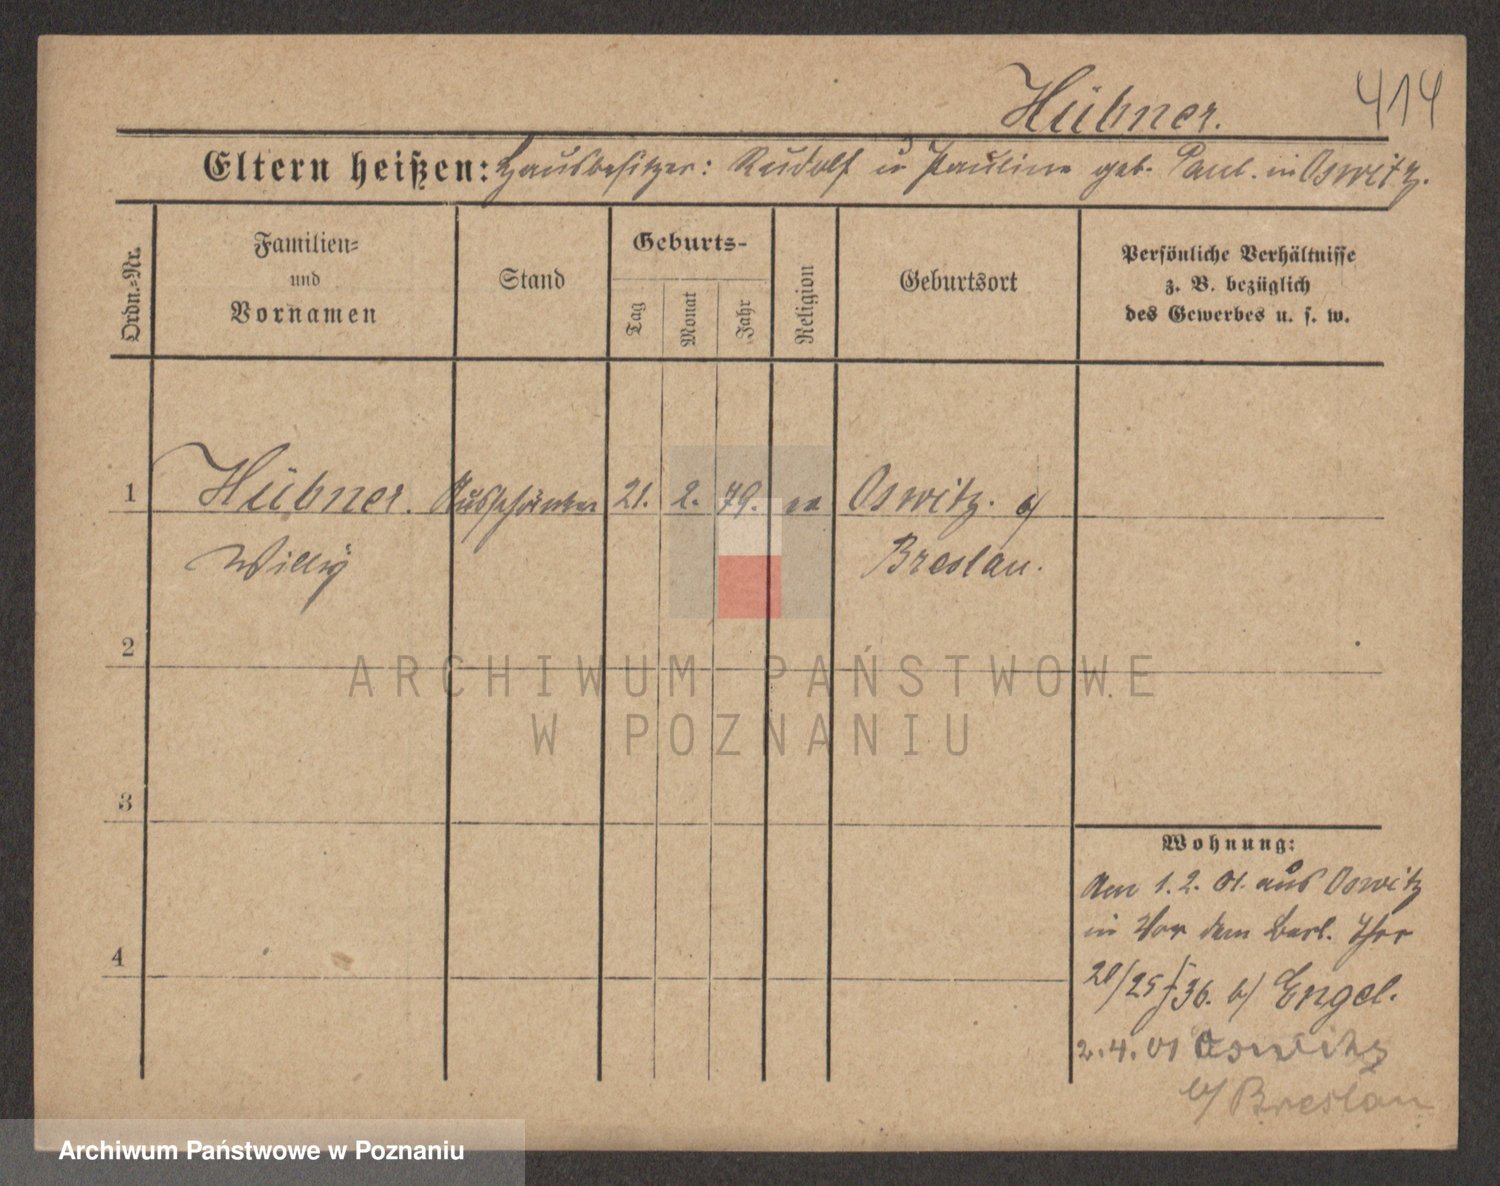 Hübner.
414
Eltern heißen: Hausbesitzer: Rudolf u Pauline geb. Paul. in Oswitz.
Ordn.-Nr.
Familien-
und
Vornamen
Stand
Geburts-
Tag
Monat
Jahr
Religion
Geburtsort
Persönliche Verhältnisse
z. B. bezüglich
des Gewerbes u. s. w.
1
Hübner. Ausschänker 21. 2. 79. Oswitz.
Willy
Breslau.
2
ARCHIWUM PAŃSTWOWE
W POZNANIU
3
Wohnung:
Am 1. 2. 01. aus Oswitz
in Vor dem Berl. Thor
4
b/ Engel.
2. 4. 01 Oswitz
b/ Breslau
Archiwum Państwowe w Poznaniu